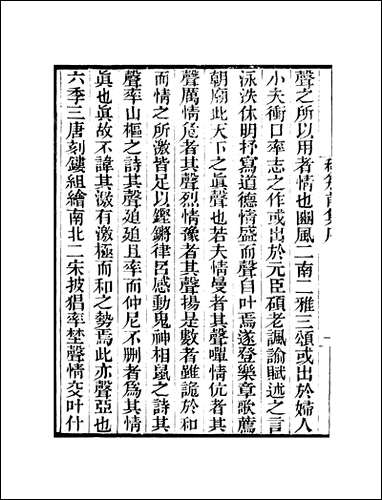 聲之所以用者情也豳風二南二雅三頌或出於婦人
小夫衝口率志之作或出於元臣碩老諷諭賦述之言
泳泆休明抒寫道德情盛而聲自叶焉遂登樂章歌薦
朝廟此天下之眞聲也若夫情曼者其聲嘽情伉者其
聲厲情危者其聲烈情豫者其聲揚是數者雖詭於和
而情之所激皆足以鏗鏘律呂感動鬼神相鼠之詩其
聲率山樞之詩其聲廹廹且率而仲尼不刪者爲其情
眞也眞故不諱其激有激極而和之勢焉此亦聲亞也
六季三唐刻鏤組繪南北二宋披猖率埜聲情交叶什